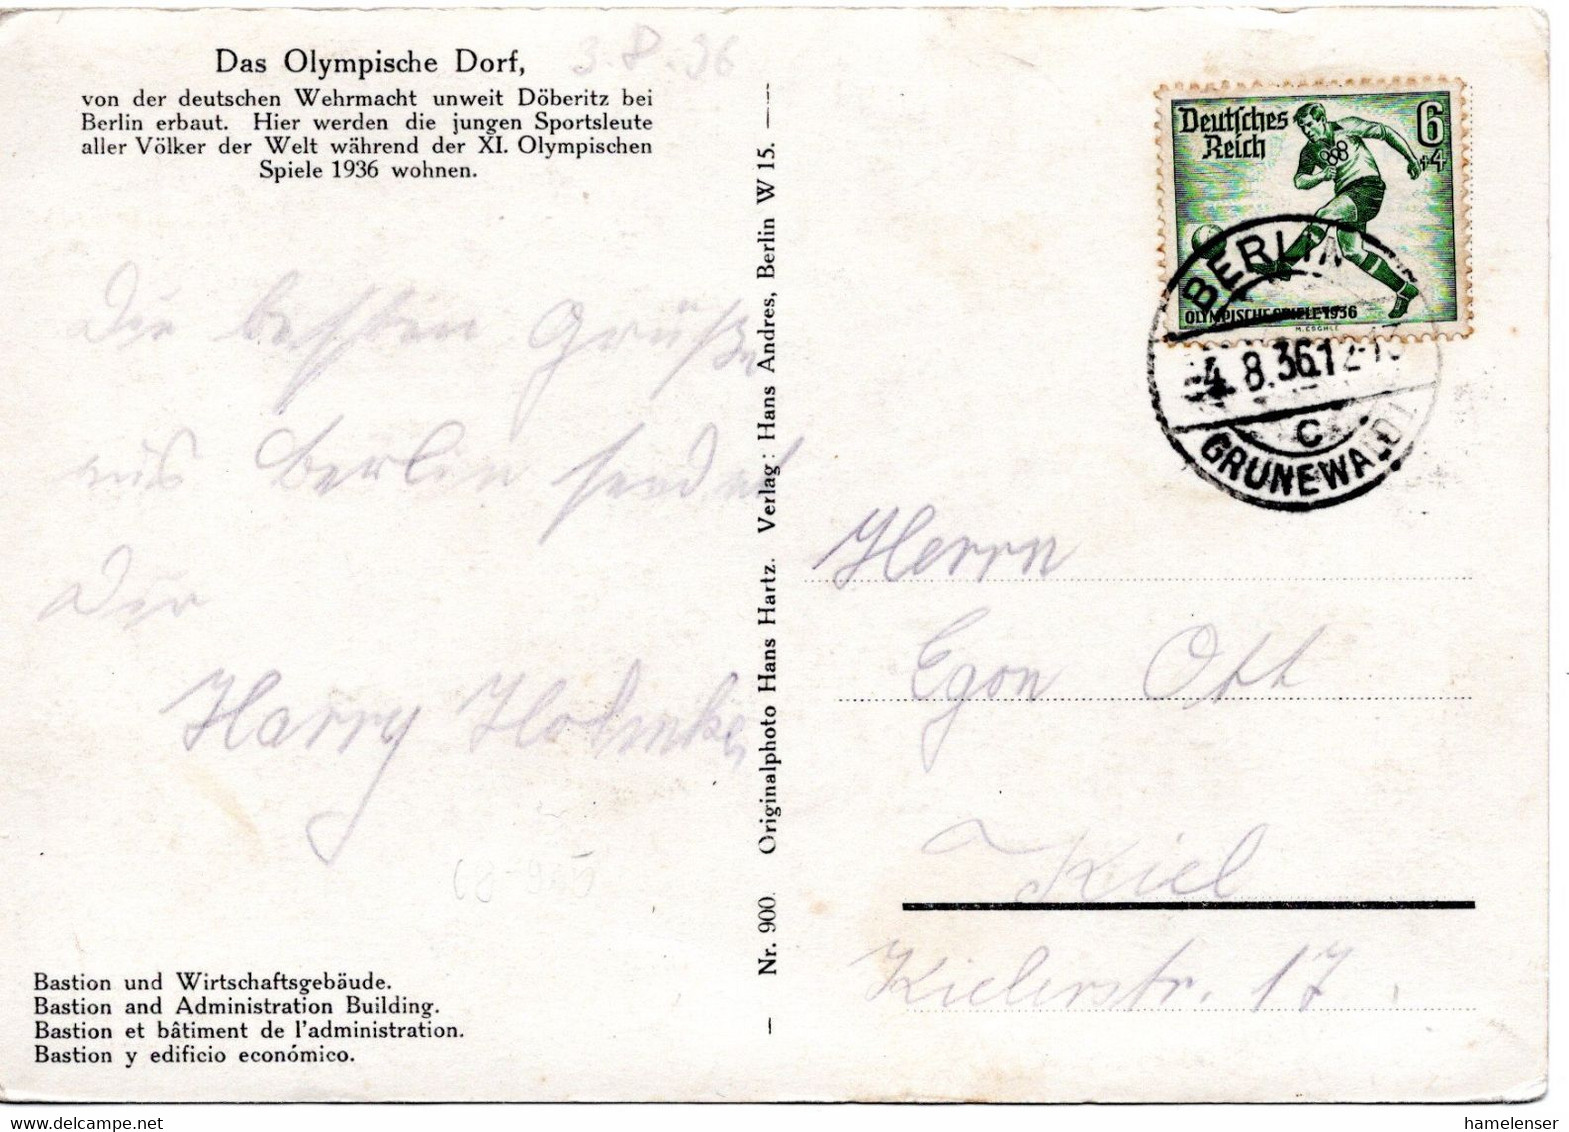 Das Olympische Dorf,
von der deutschen Wehrmacht unweit Döberitz bei
Berlin erbaut. Hier werden die jungen Sportsleute
aller Völker der Welt während der XI. Olympischen
Spiele 1936 wohnen.
3.8.36
Die besten Grüße
aus Berlin sendet
Dir
Harry
Bastion und Wirtschaftsgebäude.
Bastion and Administration Building.
Bastion et bâtiment de l'administration.
Bastion y edificio económico.
Nr. 900. Originalphoto Hans Hartz. Verlag: Hans Andres, Berlin W 15.
Deutsches
Reich
6
+4
OLYMPISCHE SPIELE 1936
BERLIN
-4.8.36.12-13
C
GRUNEWALD
Herrn
Egon Ott
Kiel
Kielerstr. 17
hamelenser
www.delcampe.net